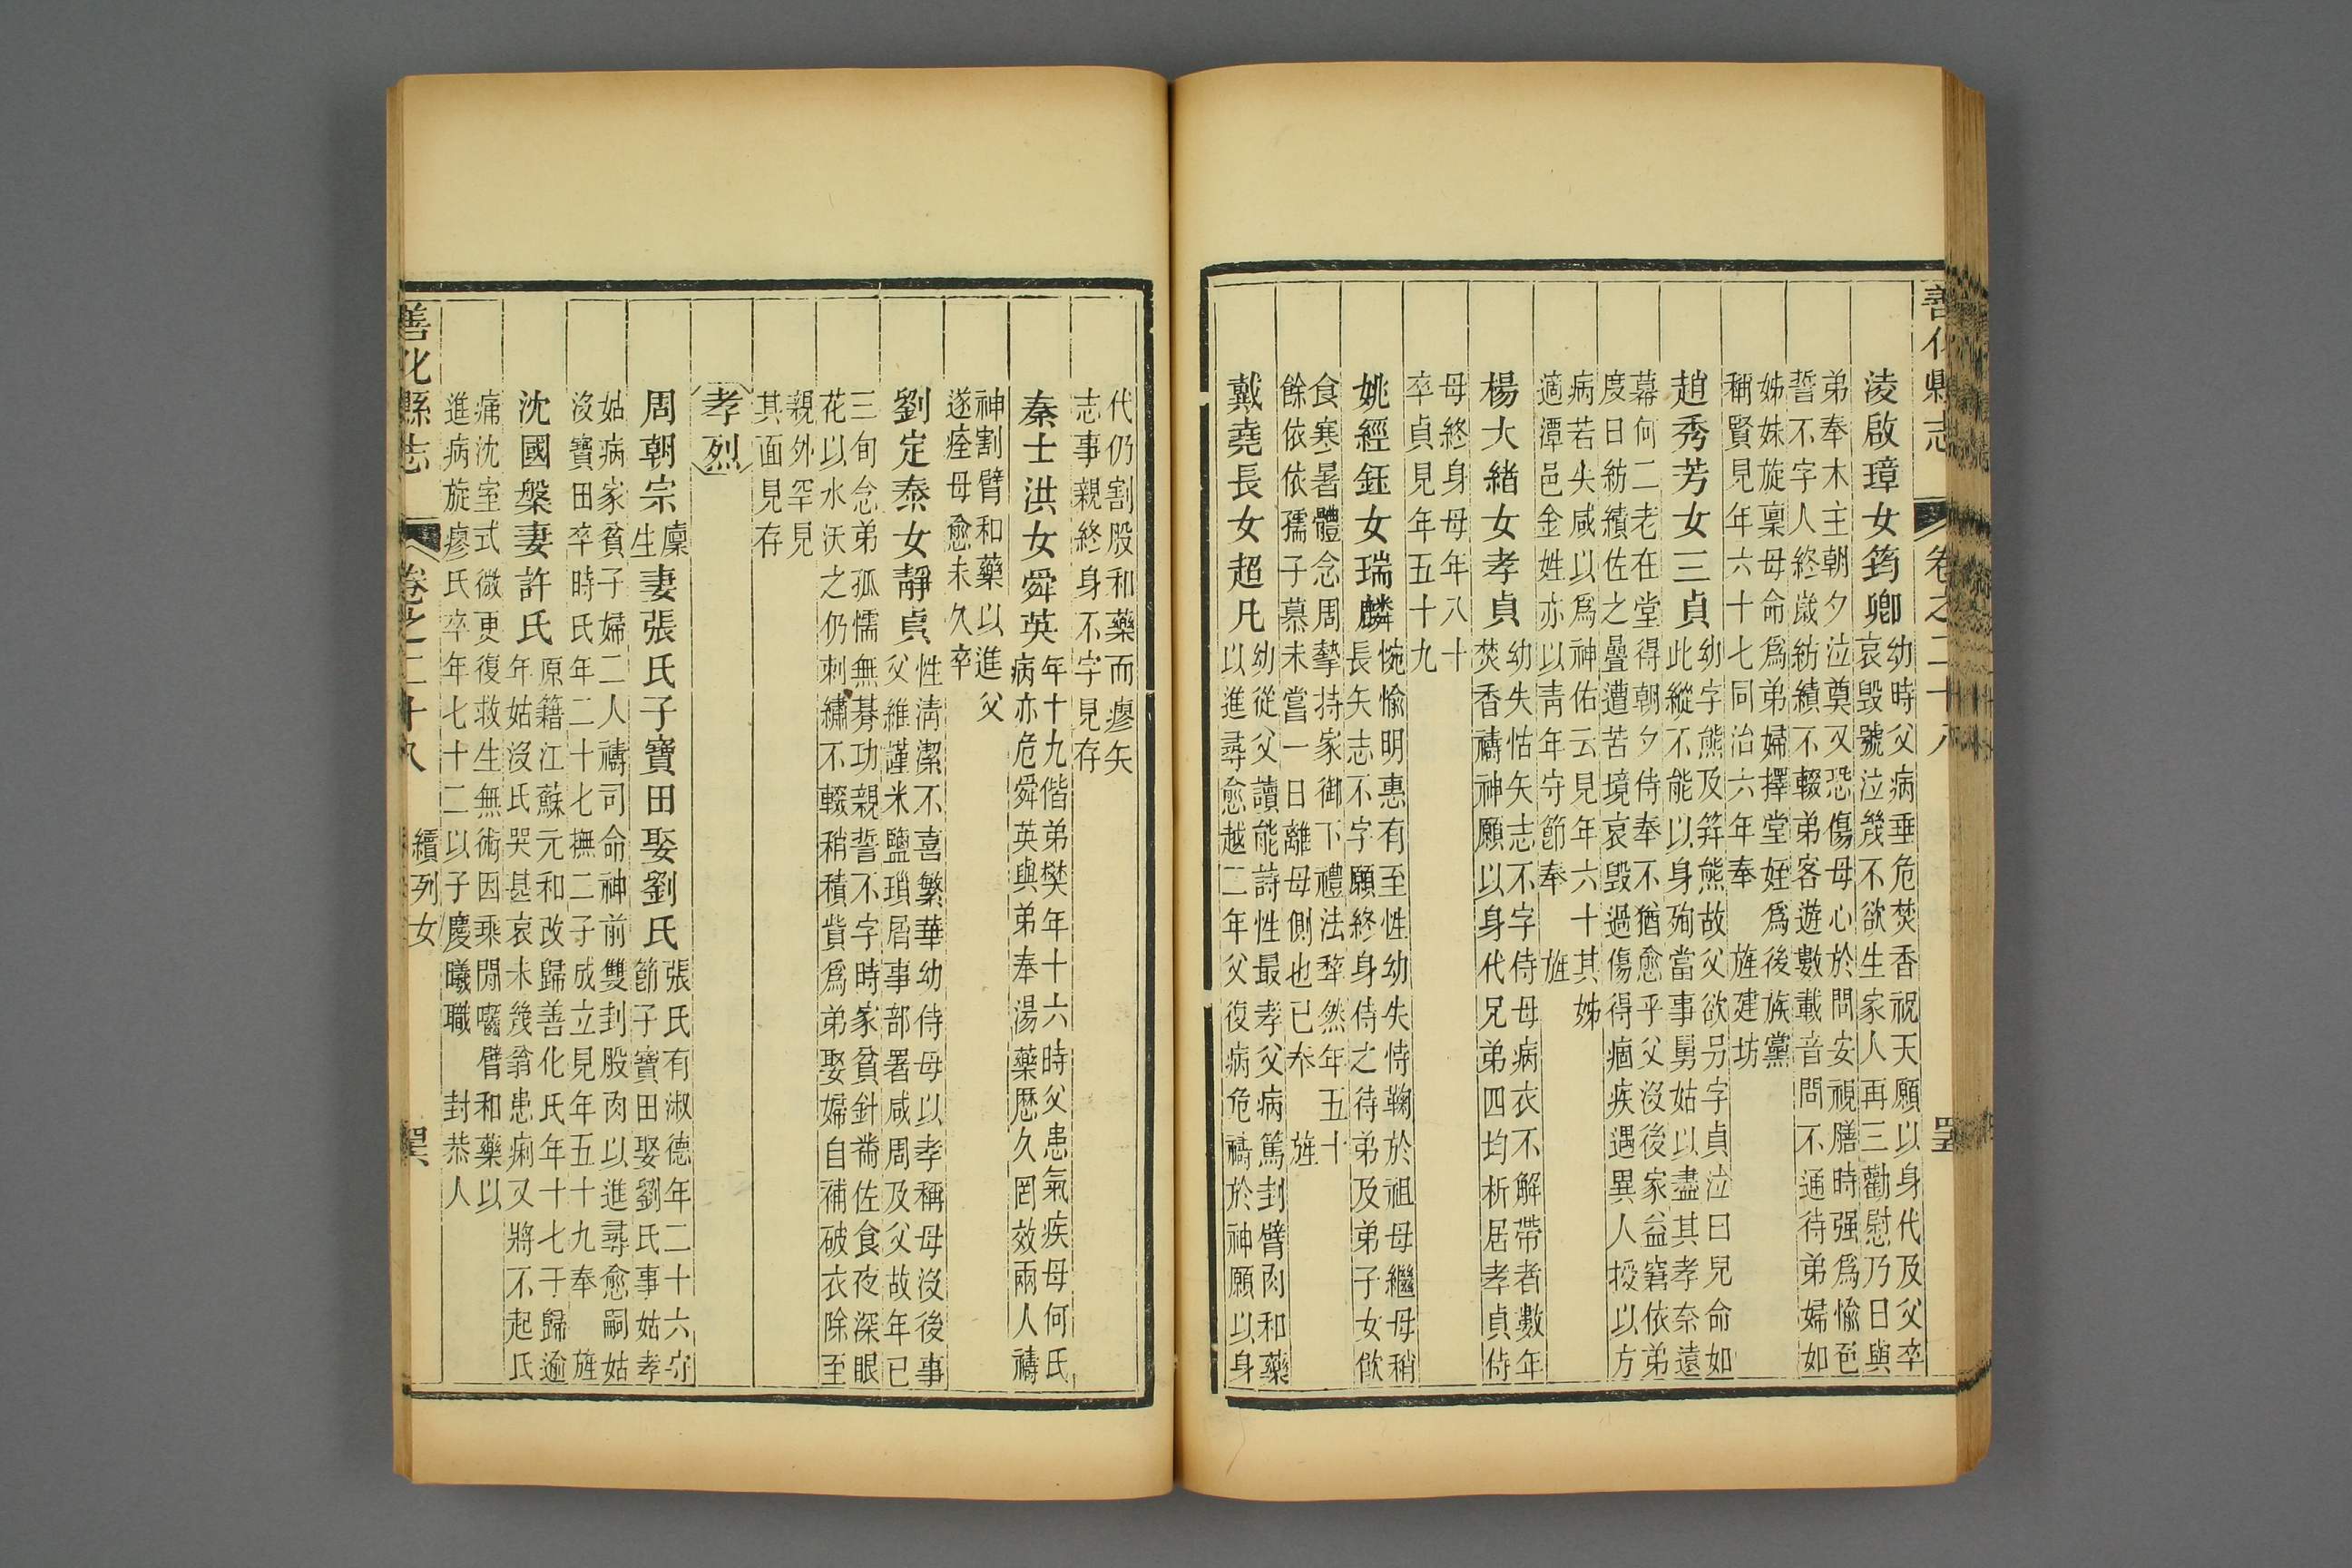 善化縣志
卷之二十八
凌啟璋女筠卿
幼時父病垂危焚香祝天願以身代及父卒
哀毀號泣幾不欲生家人再三勸慰乃日與
弟奉木主朝夕泣奠又恐傷母心於問安視膳時强爲愉色
誓不字人終歲紡績不輟弟客遊數載音問不通待弟婦如
姊妹旋稟母命爲弟婦擇堂姪爲後族黨
稱賢見年六十七同治六年奉 旌建坊
趙秀芳女三貞
幼字熊及筓熊故父欲另字貞泣曰兒命如
此縱不能以身殉當事舅姑以盡其孝奈遠
幕何二老在堂得朝夕侍奉不猶愈乎父沒後家益窘依弟
度日紡績佐之疊遭苦境哀毀過傷得痼疾遇異人授以方
病若失咸以爲神佑云見年六十其姊
適潭邑金姓亦以靑年守節奉 旌
楊大緒女孝貞
幼失怙矢志不字侍母病衣不解帶者數年
焚香禱神願以身代兄弟四均析居孝貞侍
母終身母年八十
卒貞見年五十九
姚經鈺女瑞麟
惋愉明惠有至性幼失恃鞠於祖母繼母稍
長矢志不字願終身侍之待弟及弟子女飮
食寒暑體念周摯持家御下禮法犂然年五十
餘依依孺子慕未嘗一日離母側也已奉 旌
戴堯長女超凡
幼從父讀能詩性最孝父病篤刲臂肉和藥
以進尋愈越二年父復病危禱於神願以身
代仍割股和藥而瘳矢
志事親終身不字見存
秦士洪女舜英
年十九偕弟樊年十六時父患氣疾母何氏
病亦危舜英與弟奉湯藥歷久罔效兩人禱
神割臂和藥以進父
遂痊母愈未久卒
劉定泰女靜貞
性淸潔不喜繁華幼侍母以孝稱母沒後事
父維謹米鹽瑣屑事部署咸周及父故年已
三旬念弟孤懦無朞功親誓不字時家貧針黹佐食夜深眼
花以水沃之仍刺繡不輟稍積貲爲弟娶婦自補破衣除至
親外罕見
其面見存
孝烈
周朝宗廩生妻張氏子寶田娶劉氏
張氏有淑德年二十六守
節子寶田娶劉氏事姑孝
姑病家貧子婦二人禱司命神前雙刲股肉以進尋愈嗣姑
沒寶田卒時氏年二十七撫二子成立見年五十九奉 旌
沈國槃妻許氏
原籍江蘇元和改歸善化氏年十七于歸逾
年姑沒氏哭甚哀未幾翁患痢又將不起氏
痛沈室式微更復救生無術因乘閒嚙臂和藥以
進病旋瘳氏卒年七十二以子慶曦職 封恭人
善化縣志
卷之二十八
續列女